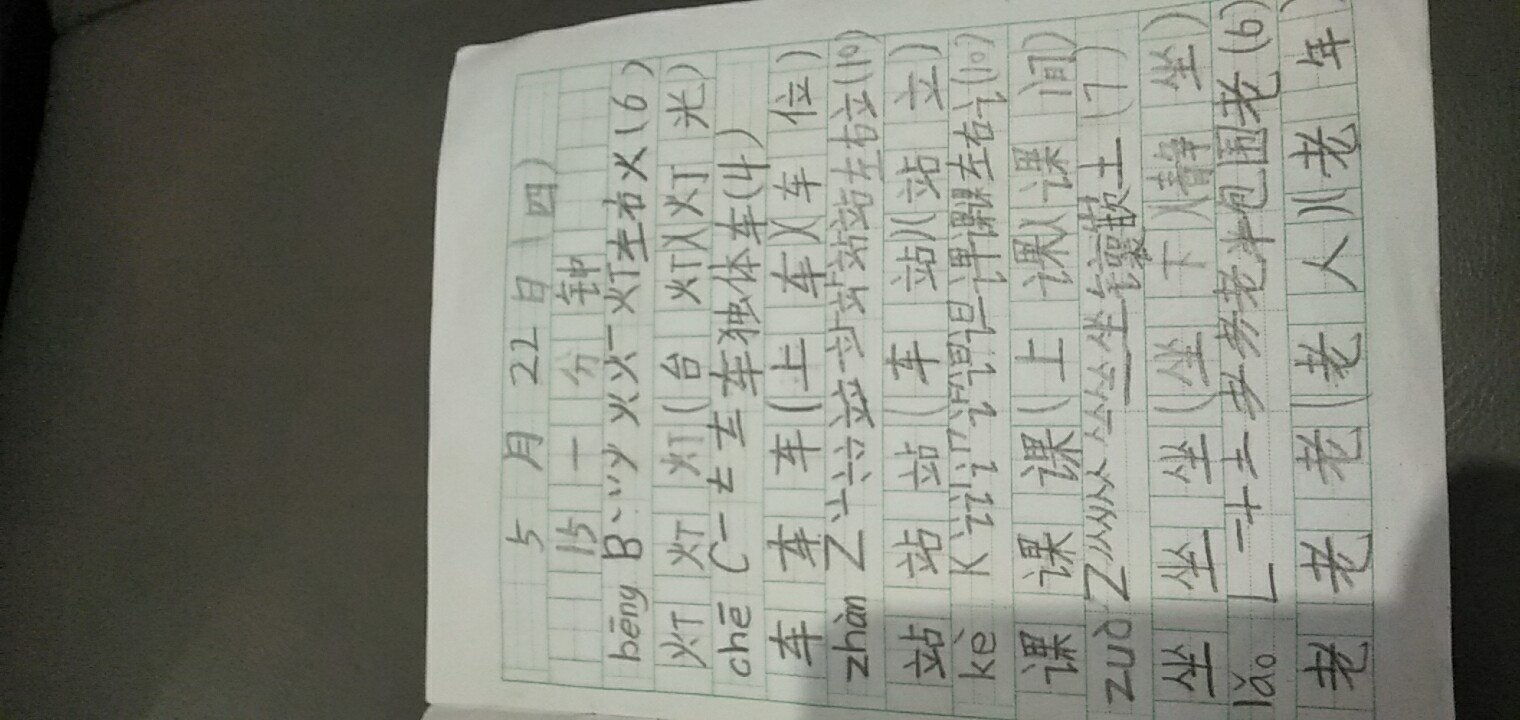 5月22日(四)
15一分钟
bēng B丶丷少火火一灯左右火(6)
灯灯灯灯(台灯)(灯光)
chē C一𠂇左车独体车(4)
车车车车(上车)(车位)
zhàn Z丶亠六立立站站站站左右立(10)
站站站站(车站)(站立)
kè K 课课左右讠(10)
课课课课(上课)(课间)
zuò Z 人从坐坐镶嵌土(7)
坐坐坐坐(坐下)(静坐)
lǎo L一十土耂老老半包围老(6)
老老老老(老人)(老年)